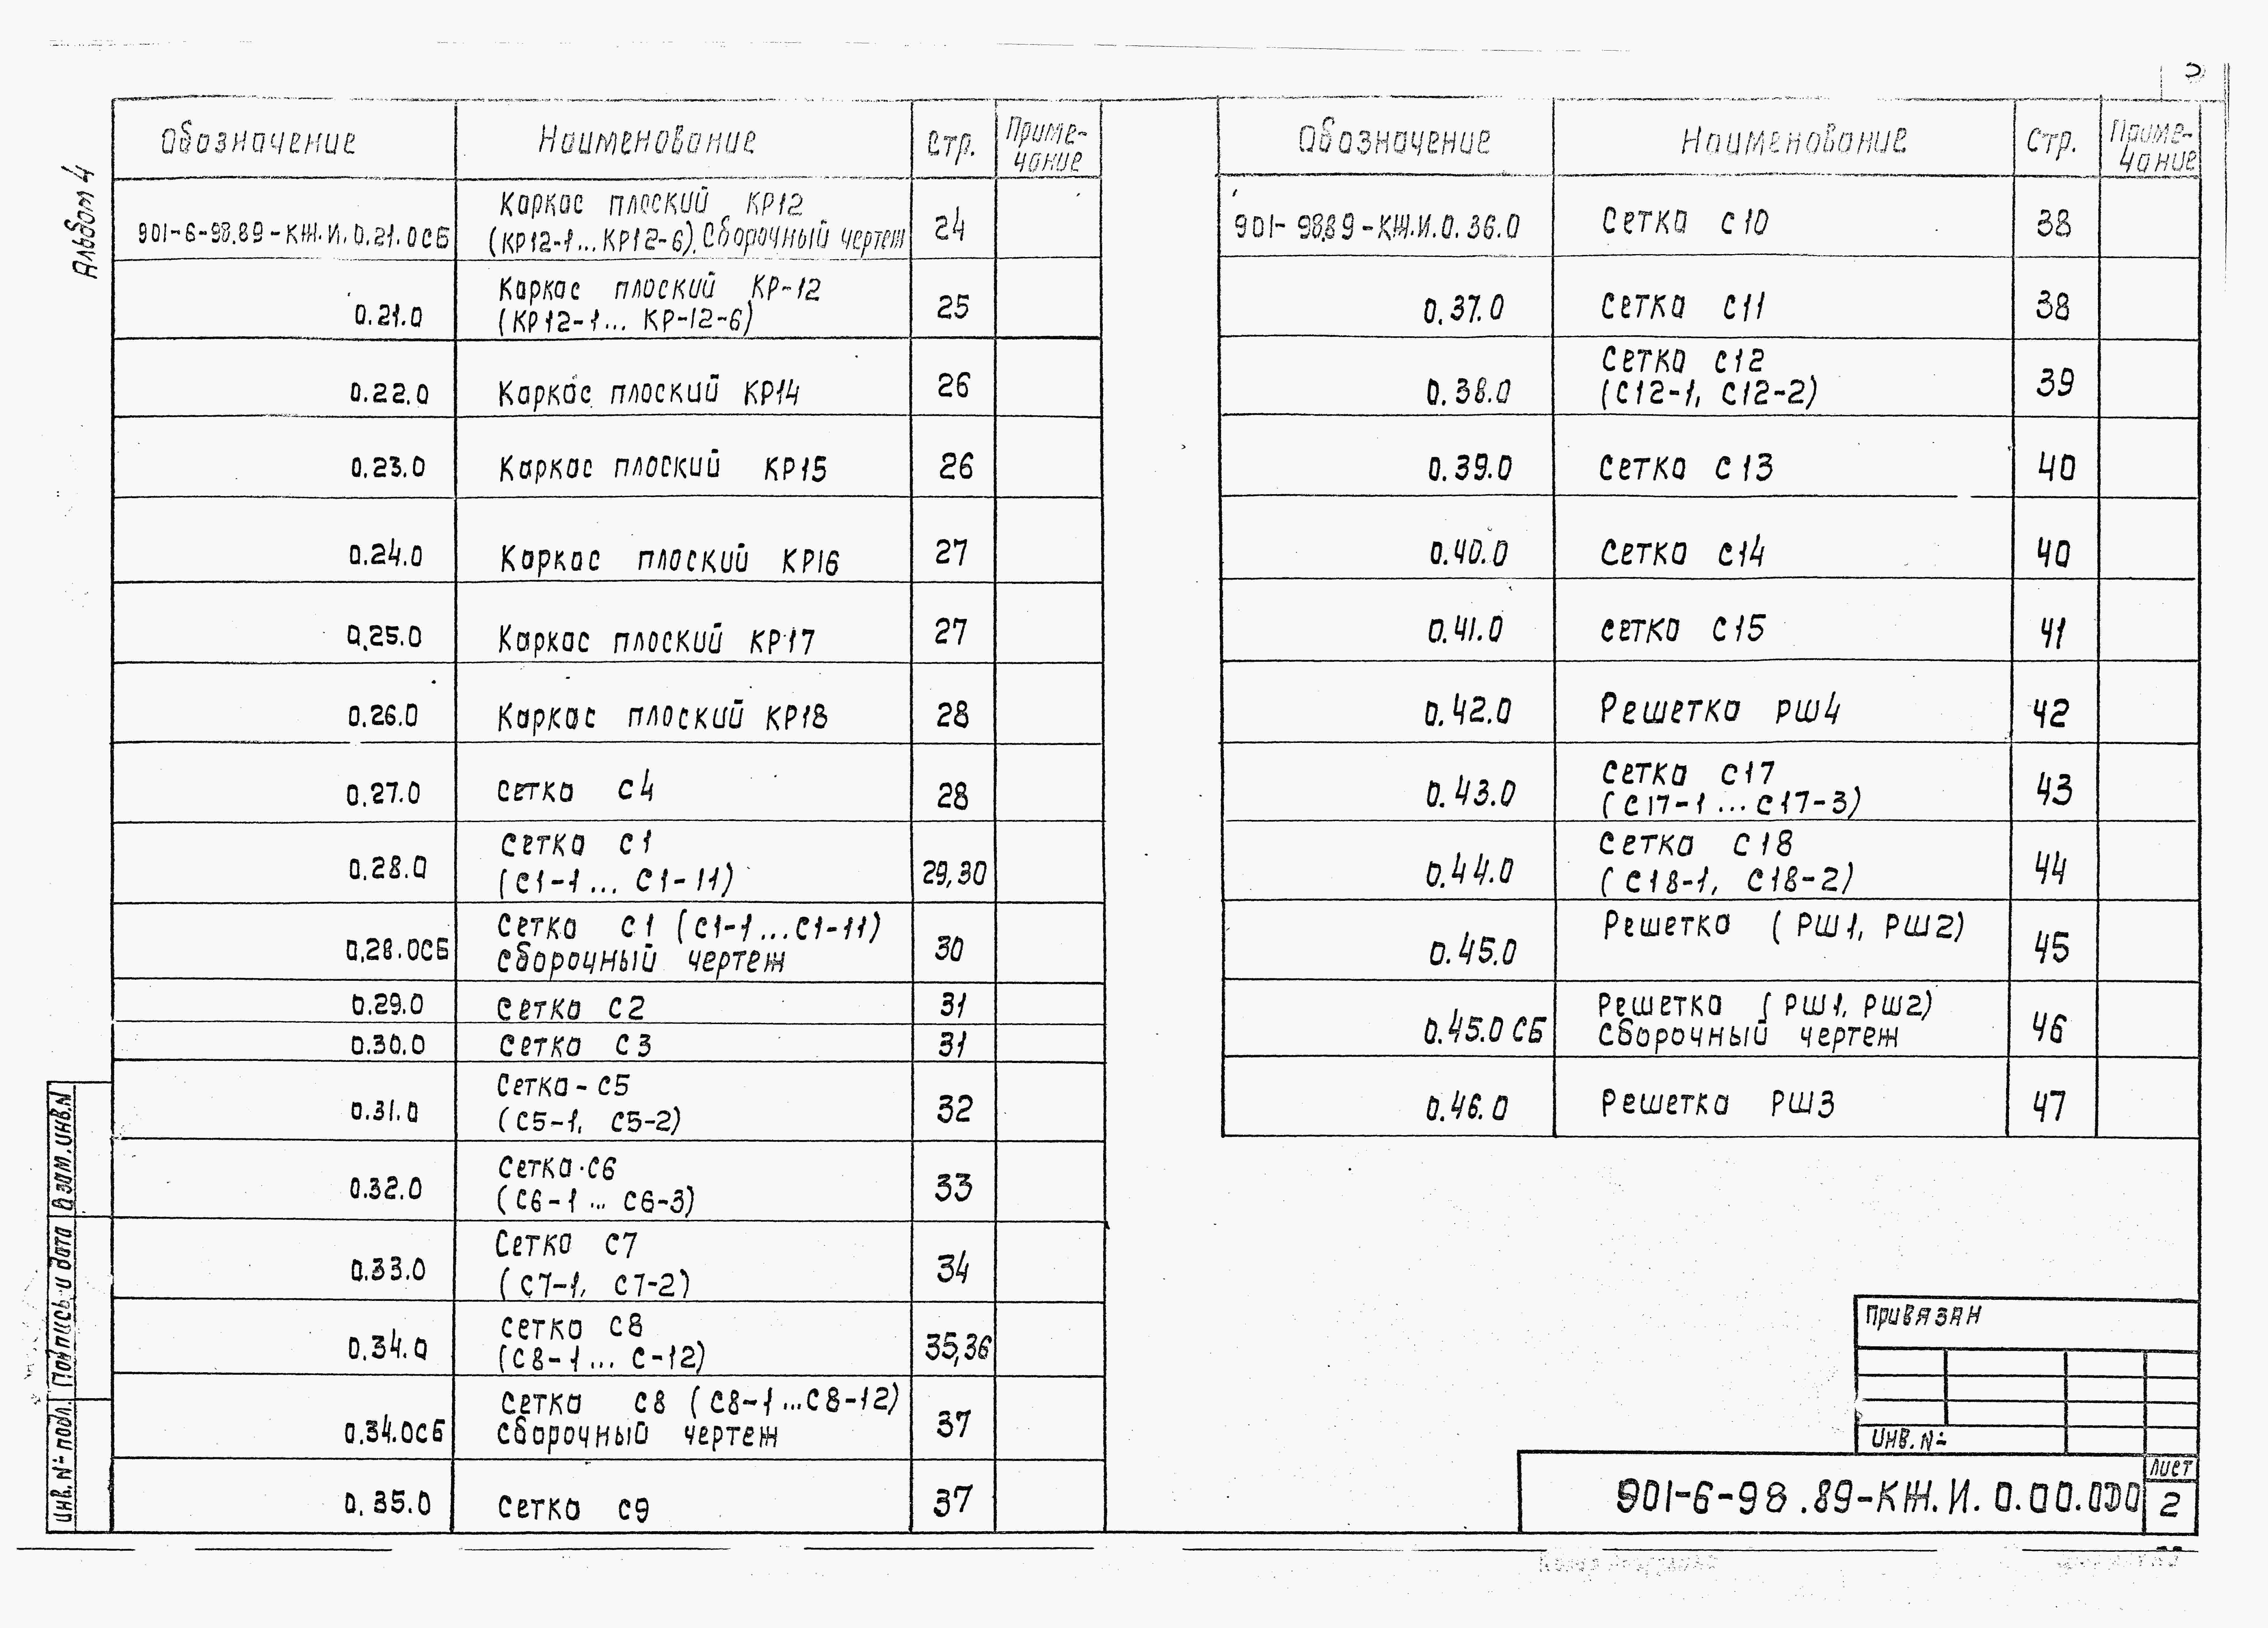 Альбом 4
Обозначение Наименование Стр. Приме-
чание
Каркас плоский КР12
901-6-98.89-КЖ.И.0.21.0СБ (КР12-1...КР12-6). Сборочный чертеж 24
Каркас плоский КР-12
0.21.0 (КР12-1... КР-12-6) 25
0.22.0 Каркас плоский КР14 26
0.23.0 Каркас плоский КР15 26
0.24.0 Каркас плоский КР16 27
0.25.0 Каркас плоский КР17 27
0.26.0 Каркас плоский КР18 28
0.27.0 Сетка С4 28
Сетка С1
0.28.0 (С1-1... С1-11) 29,30
Сетка С1 (С1-1...С1-11)
0.28.0СБ Сборочный чертеж 30
0.29.0 Сетка С2 31
0.30.0 Сетка С3 31
Сетка-С5
0.31.0 (С5-1, С5-2) 32
Сетка С6
0.32.0 (С6-1... С6-3) 33
Сетка С7
0.33.0 (С7-1, С7-2) 34
Сетка С8
0.34.0 (С8-1... С-12) 35,36
Сетка С8 (С8-1...С8-12)
0.34.0СБ Сборочный чертеж 37
0.35.0 Сетка С9 37
Обозначение Наименование Стр. Приме-
чание
901-98.89-КЖ.И.0.36.0 Сетка С10 38
0.37.0 Сетка С11 38
Сетка С12
0.38.0 (С12-1, С12-2) 39
0.39.0 Сетка С13 40
0.40.0 Сетка С14 40
0.41.0 Сетка С15 41
0.42.0 Решетка РШ4 42
Сетка С17
0.43.0 (С17-1...С17-3) 43
Сетка С18
0.44.0 (С18-1, С18-2) 44
Решетка (РШ1, РШ2)
0.45.0 45
Решетка (РШ1, РШ2)
0.45.0 СБ Сборочный чертеж 46
0.46.0 Решетка РШ3 47
Привязан
Инв. №
901-6-98.89-КЖ.И.0.00.000
Лист
2
Взам.инв.№
Подпись и дата
Инв. № подл.